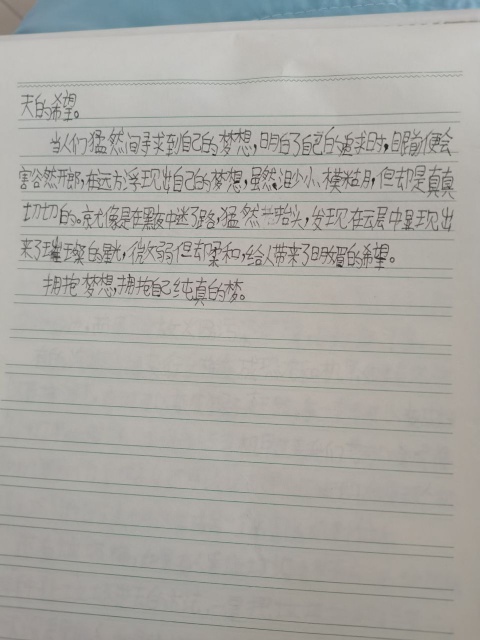 天的希望。
当人们猛然间寻求到自己的梦想,明白了自己的追求时,眼前便会
豁然开朗,在远方浮现出自己的梦想,虽然渺小、模糊,但却是真真
切切的。就像是在黑夜中迷了路,猛然抬头,发现在云层中显现出
来了璀璨的星光,微弱但却柔和,给人带来了明媚的希望。
拥抱梦想,拥抱自己纯真的梦。